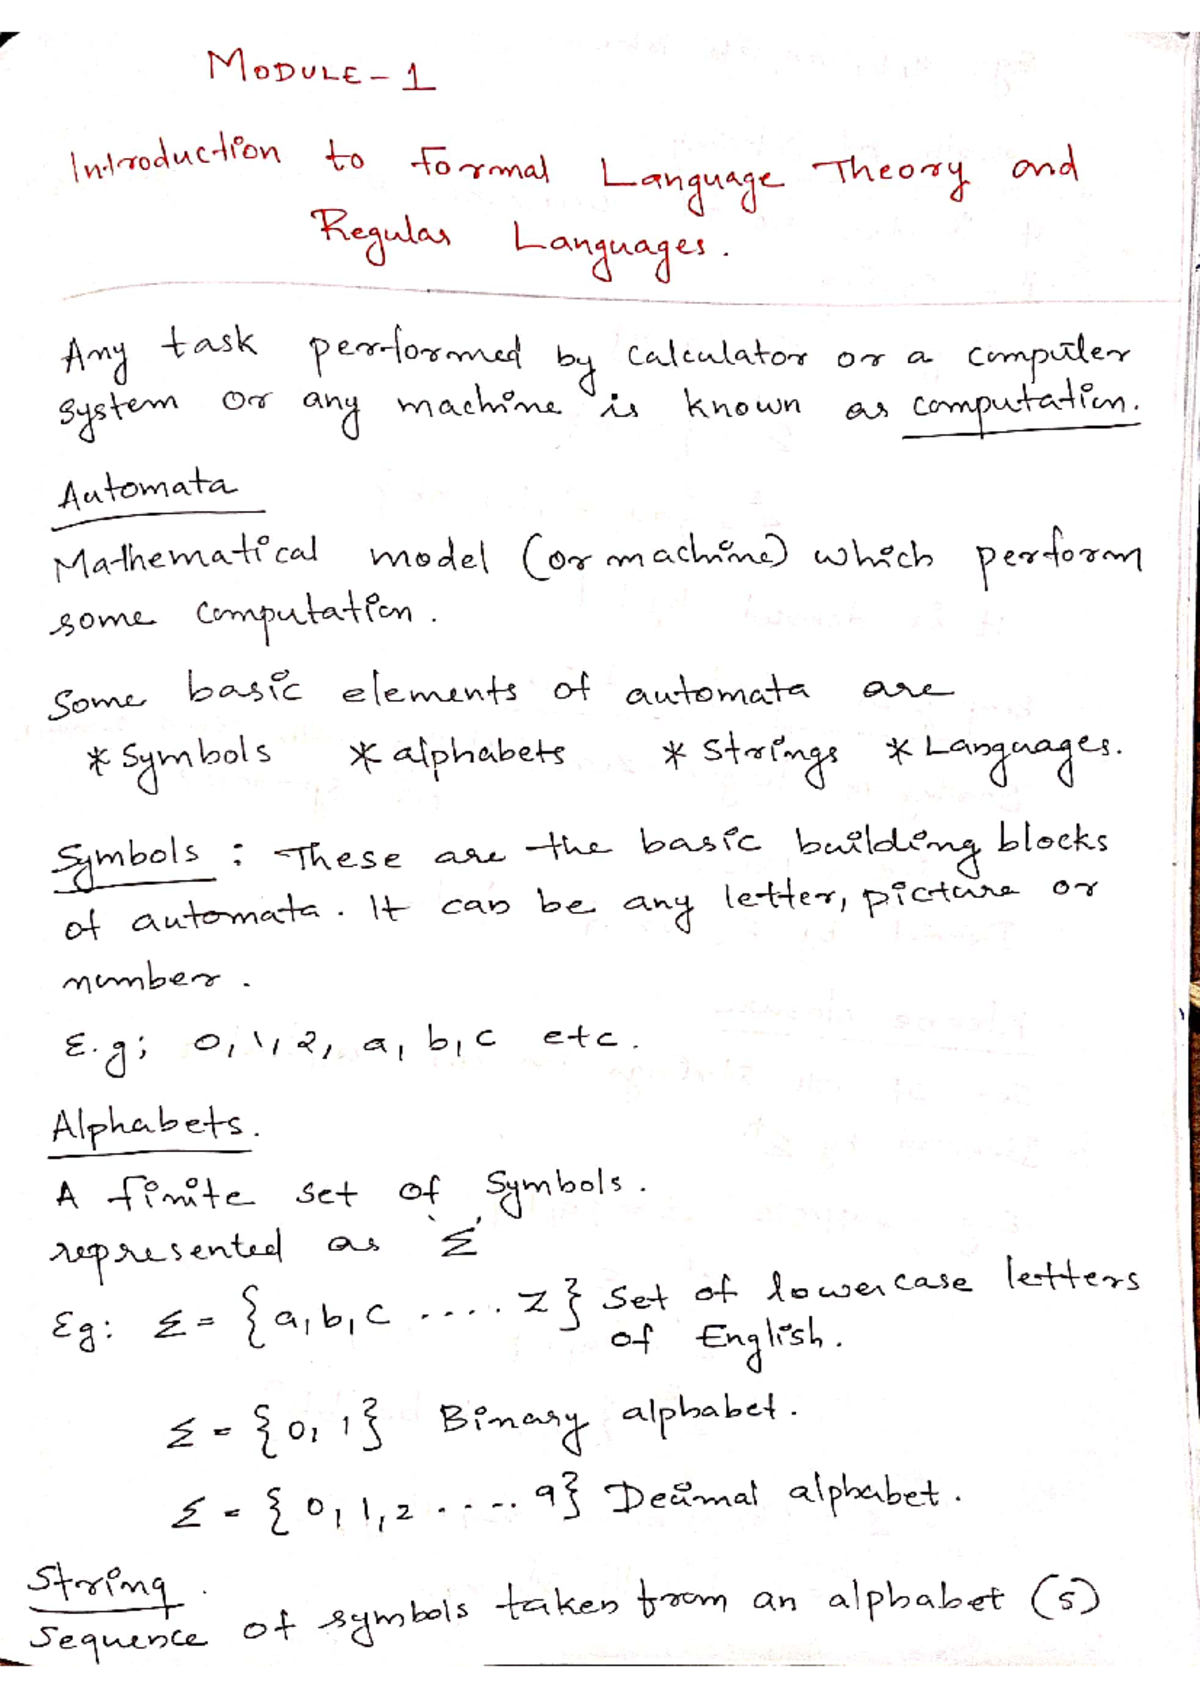 MODULE-1
Introduction to Formal Language Theory and
Regular Languages.
Any task performed by calculator or a computer
system or any machine is known as computation.
Automata
Mathematical model (or machine) which perform
some computation.
Some basic elements of automata are
* Symbols * alphabets * Strings * Languages.
Symbols : These are the basic building blocks
of automata. It can be any letter, picture or
number.
E.g; 0, 1, 2, a, b, c etc.
Alphabets.
A finite set of Symbols.
represented as 'Σ'
Eg: Σ = {a, b, c .... z} Set of lowercase letters
of English.
Σ = {0, 1} Binary alphabet.
Σ = {0, 1, 2 ..... 9} Decimal alphabet.
String.
Sequence of symbols taken from an alphabet (s)